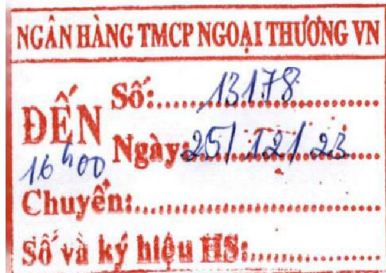 NGÂN HÀNG TMCP NGOẠI THƯƠNG VN
Số:.......13178
ĐẾN
Ngày:25/12/23
16h00
Chuyển:................
Số và ký hiệu HS:............